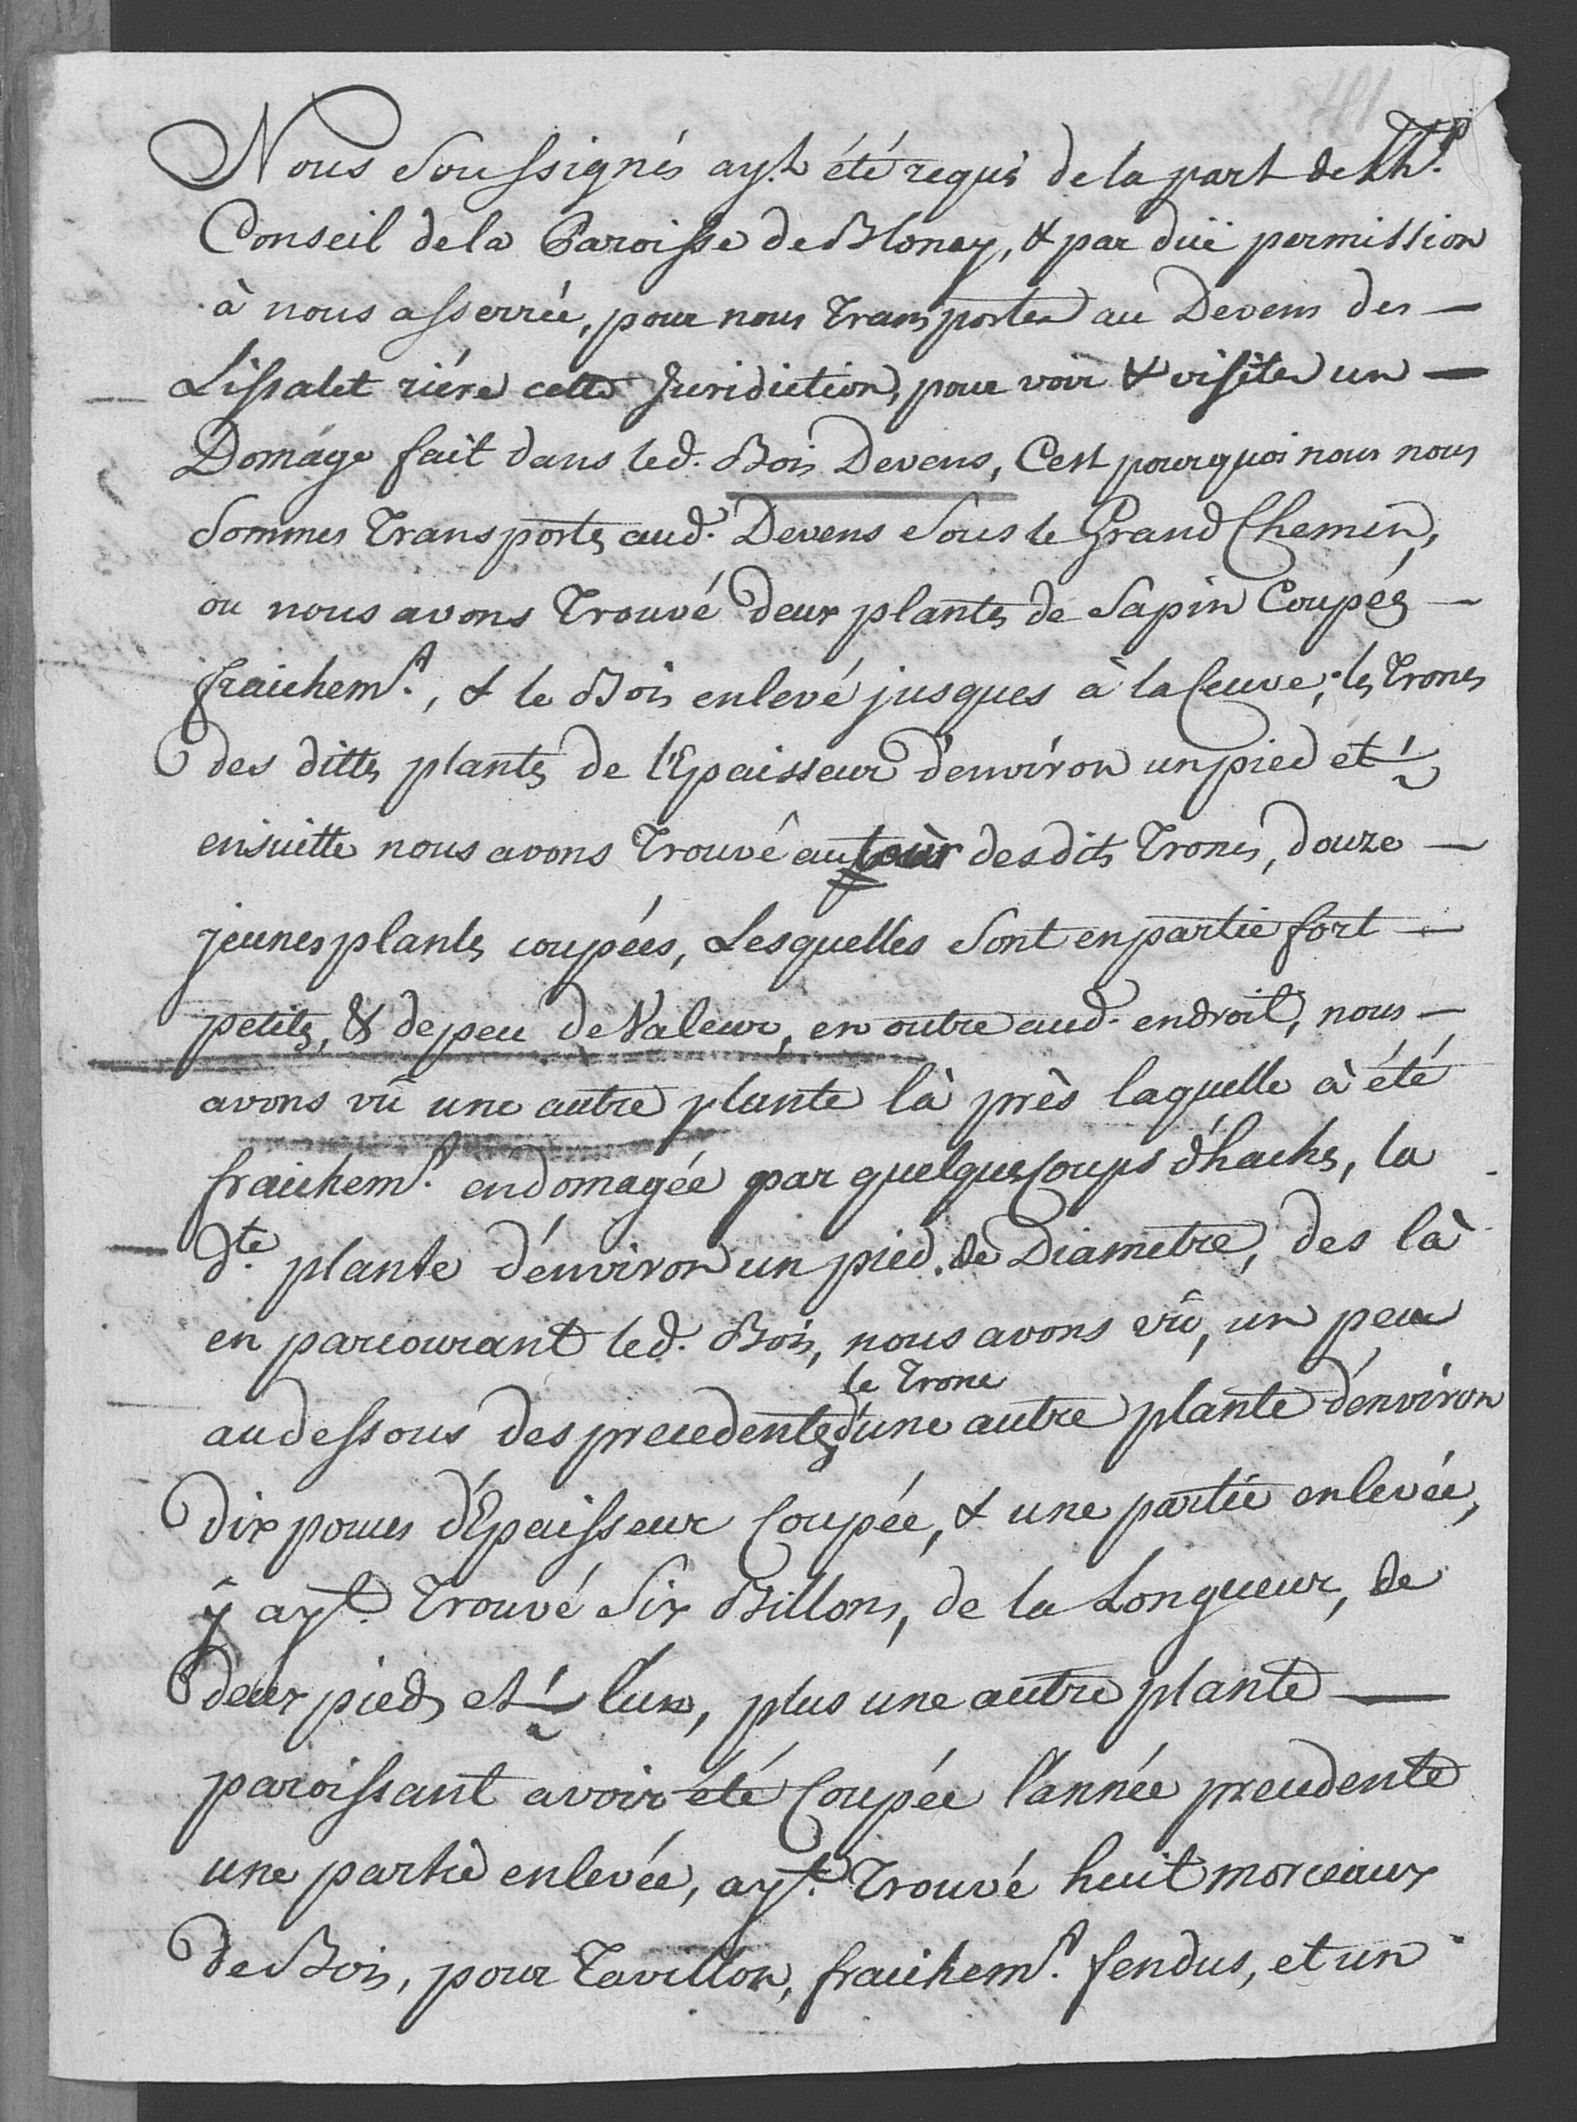 Nous Soussignés ayt été requis de la part de Lh.
Conseil de la Paroisse de Blonay, & par düe permission
à nous asserrée, pour nous Transporter au Devens des —
Lissalet riére cette Juridiction, pour voir & visiter un —
Domage fait dans led. Bois Devens, C'est pourquoi nous nous
Sommes Transportés aud. Devens Sous le Grand Chemin,
ou nous avons Trouvé deux plantes de Sapin Coupées —
fraichemt., & le Bois enlevé jusques à la Ceuve; les Troncs
des dittes plantes de l'Epaisseur d'environ un pied et ½
ensuitte nous avons Trouvé autour des dits Troncs, douze —
jeunes plantes coupées, Lesquelles Sont en partie fort —
petites, & de peu de Valeur, en outre aud. endroit, nous —
avons vû une autre plante là près laquelle à été
fraichemt. endomagée par quelques Coups d'hache, la
dte. plante d'environ un pied de Diametre, des là
en parcourant led. Bois, nous avons vû, un peu
le Tronc
au dessous des precedentes, d'une autre plante d'environ
Dix pouces d'Epaisseur Coupée, & une partie enlevée,
ÿ ayt. Trouvé Six Billons, de la Longueur, de
deux pieds et ½ l'un, plus une autre plante —
paroissant avoir été Coupée l'année precedente
une partie enlevée, ayt. Trouvé huit morceaux
de Bois, pour Tavillon, fraichemt. fendus, et un